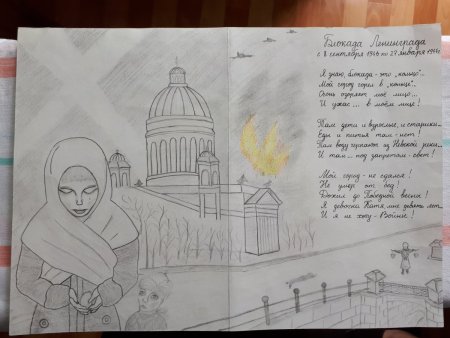 Блокада Ленинграда
с 8 сентября 1941 по 27 января 1944г.
Я знаю, блокада - это "кольцо"...
Мой город горел в "кольце"...
Огонь озаряет моё лицо...
И ужас... в моём лице!
Там дети и взрослые, и старики.
Еды и питья там - нет!
Там воду черпают из Невской реки...
И там... под запретом - свет!
Мой город - не сдался!
Не умер от бед!
Дожил до Победной весны!
Я девочка Катя, мне девять лет...
И я не хочу - Войны!